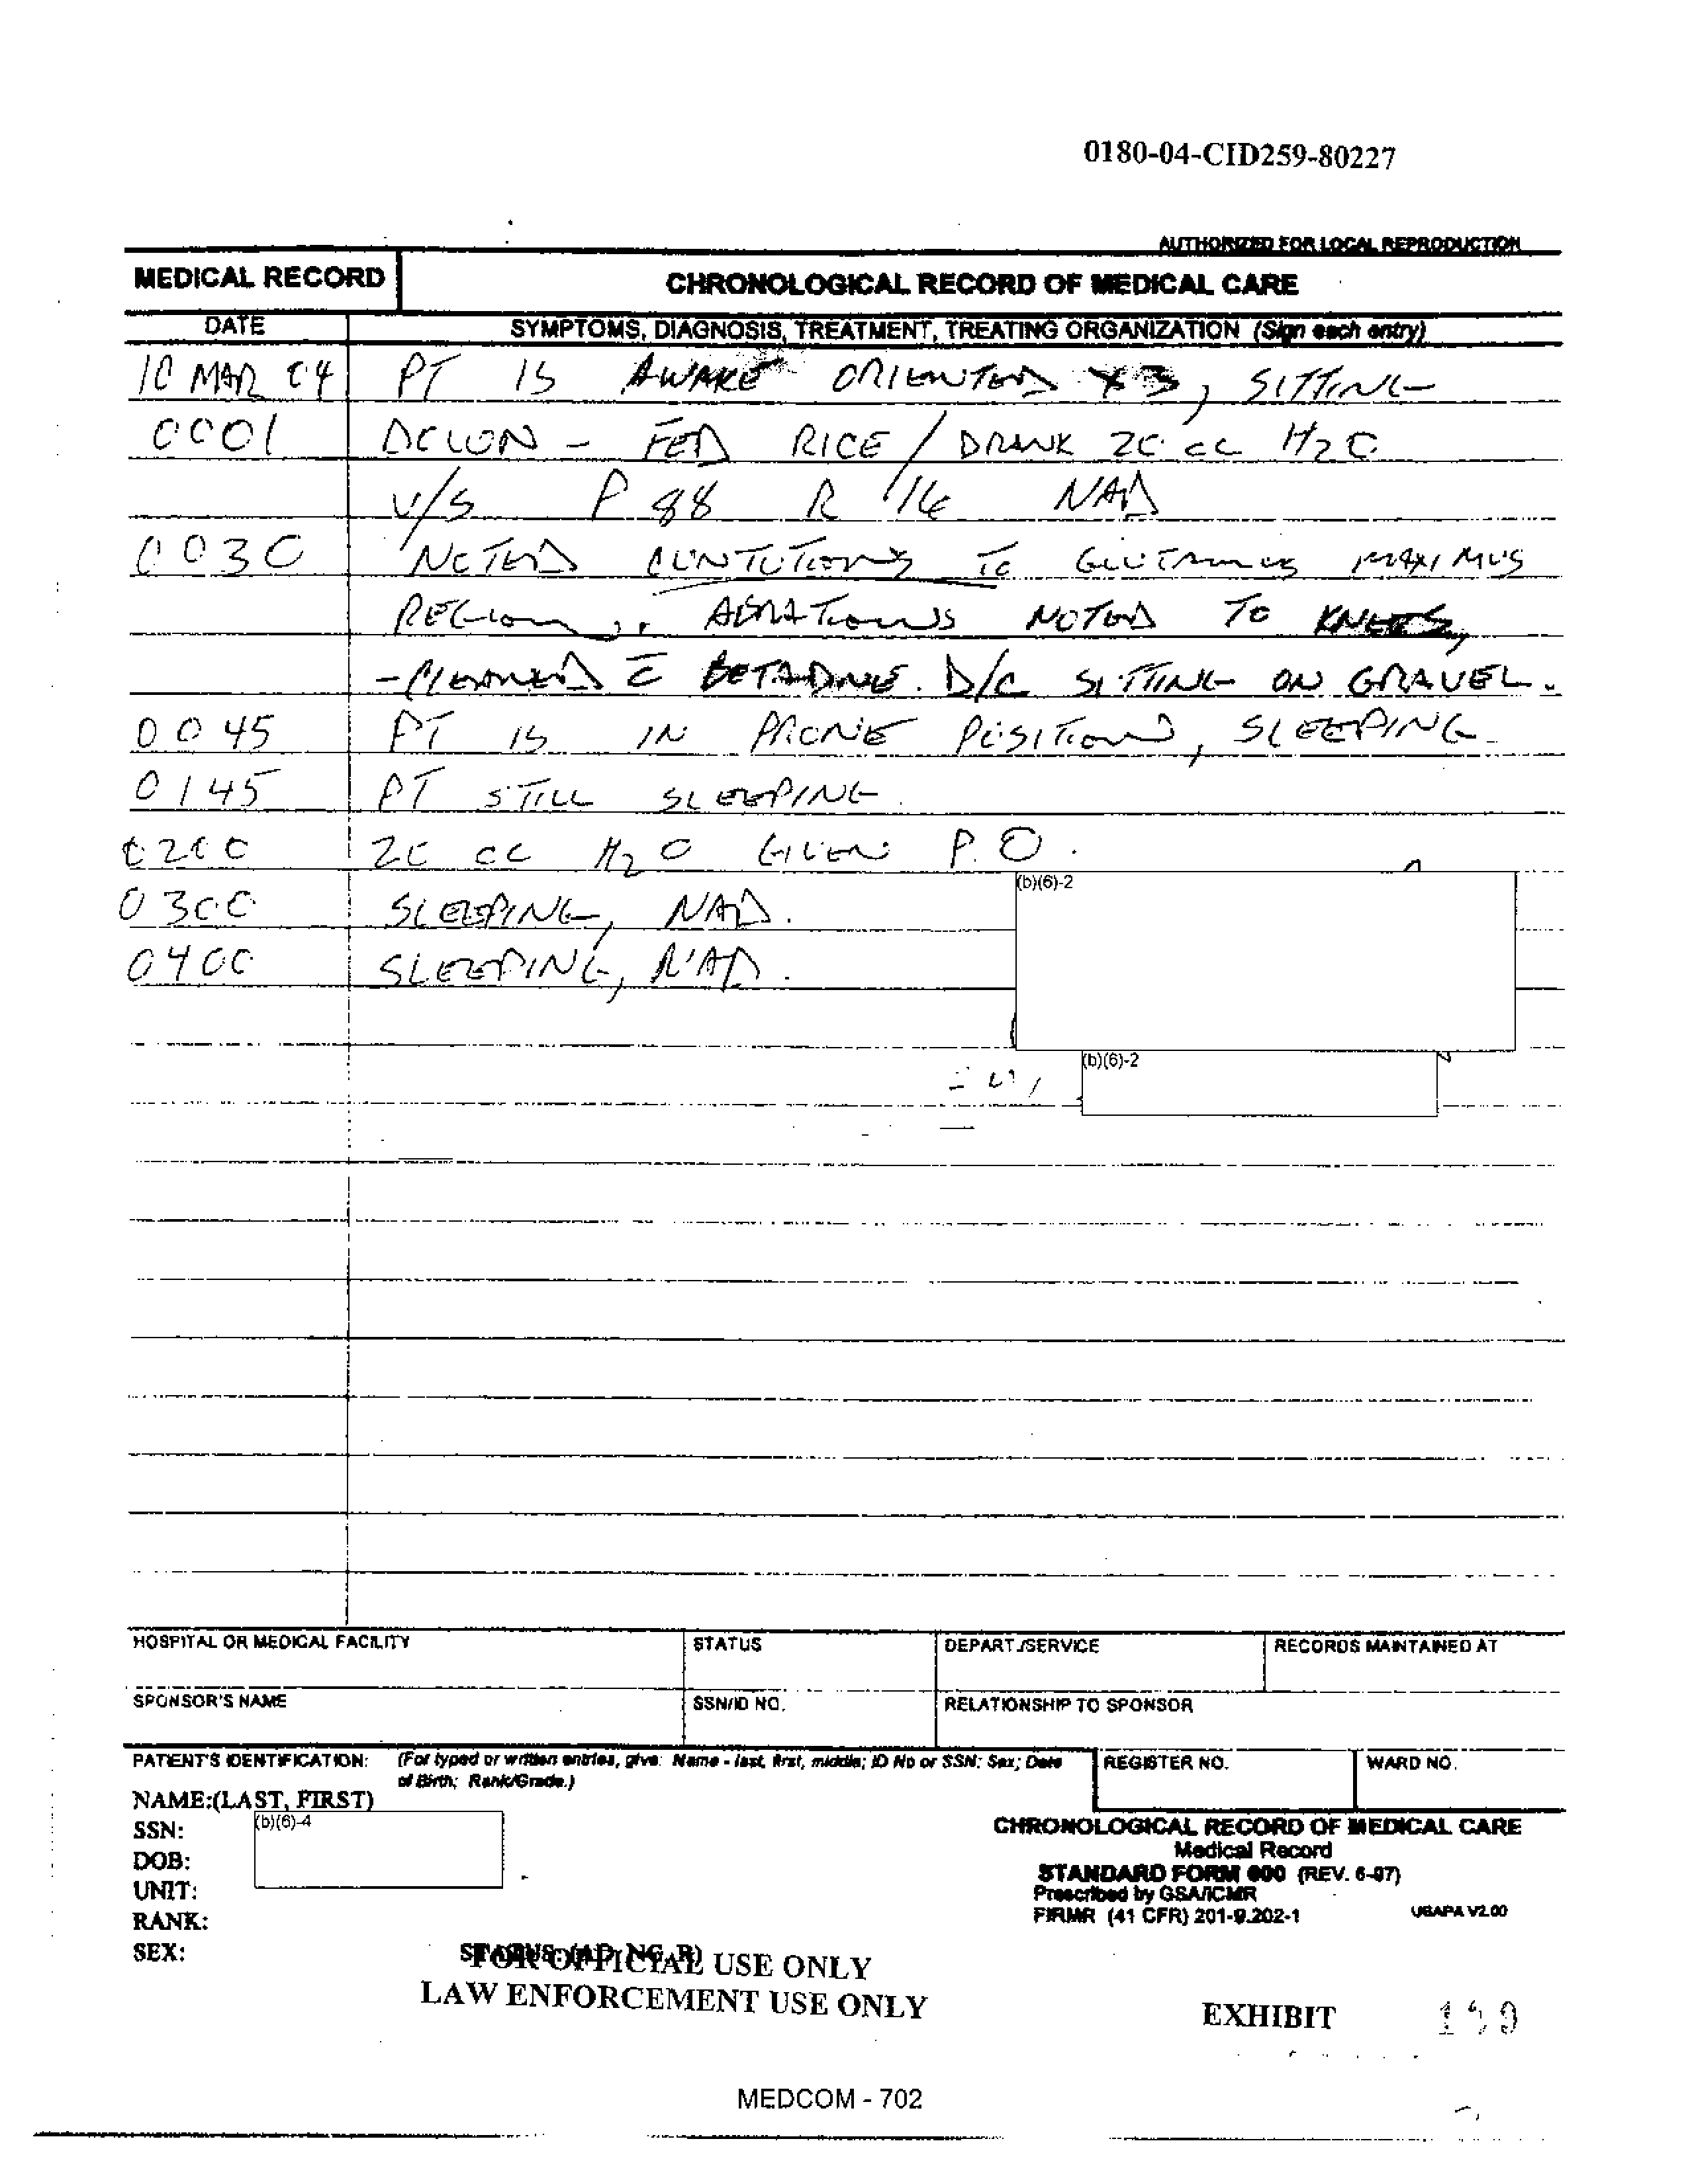 0180-04-CID259-80227
AUTHORIZED FOR LOCAL REPRODUCTION
MEDICAL RECORD
CHRONOLOGICAL RECORD OF MEDICAL CARE
DATE
SYMPTOMS, DIAGNOSIS, TREATMENT, TREATING ORGANIZATION (Sign each entry)
10 MAR 04 PT IS AWAKE ORIENTED X3, SITTING
0001 DOWN - FED RICE / DRANK 20 cc H2O
V/S P 88 R 16 NAD
0030 NOTED CONTUTIONS TO GLUTAMUS MAXIMUS
REGION. ABRATIONS NOTED TO KNEES,
- CLEANED c̄ BETADINE. D/C SITTING ON GRAVEL.
0045 PT IS IN PRONE POSITION, SLEEPING
0145 PT STILL SLEEPING.
0200 20 cc H2O GIVEN P.O.
(b)(6)-2
0300 SLEEPING, NAD.
0400 SLEEPING, NAD.
(b)(6)-2
HOSPITAL OR MEDICAL FACILITY
STATUS
DEPART./SERVICE
RECORDS MAINTAINED AT
SPONSOR'S NAME
SSN/ID NO.
RELATIONSHIP TO SPONSOR
PATIENT'S IDENTIFICATION: (For typed or written entries, give: Name - last, first, middle; ID No or SSN; Sex; Date
of Birth; Rank/Grade.)
REGISTER NO.
WARD NO.
NAME:(LAST, FIRST)
SSN:
(b)(6)-4
DOB:
UNIT:
RANK:
SEX:
CHRONOLOGICAL RECORD OF MEDICAL CARE
Medical Record
STANDARD FORM 600 (REV. 6-97)
Prescribed by GSA/ICMR
FIRMR (41 CFR) 201-9.202-1
USAPA V2.00
STATUS: (AD, NG, R)
FOR OFFICIAL USE ONLY
LAW ENFORCEMENT USE ONLY
EXHIBIT
MEDCOM - 702